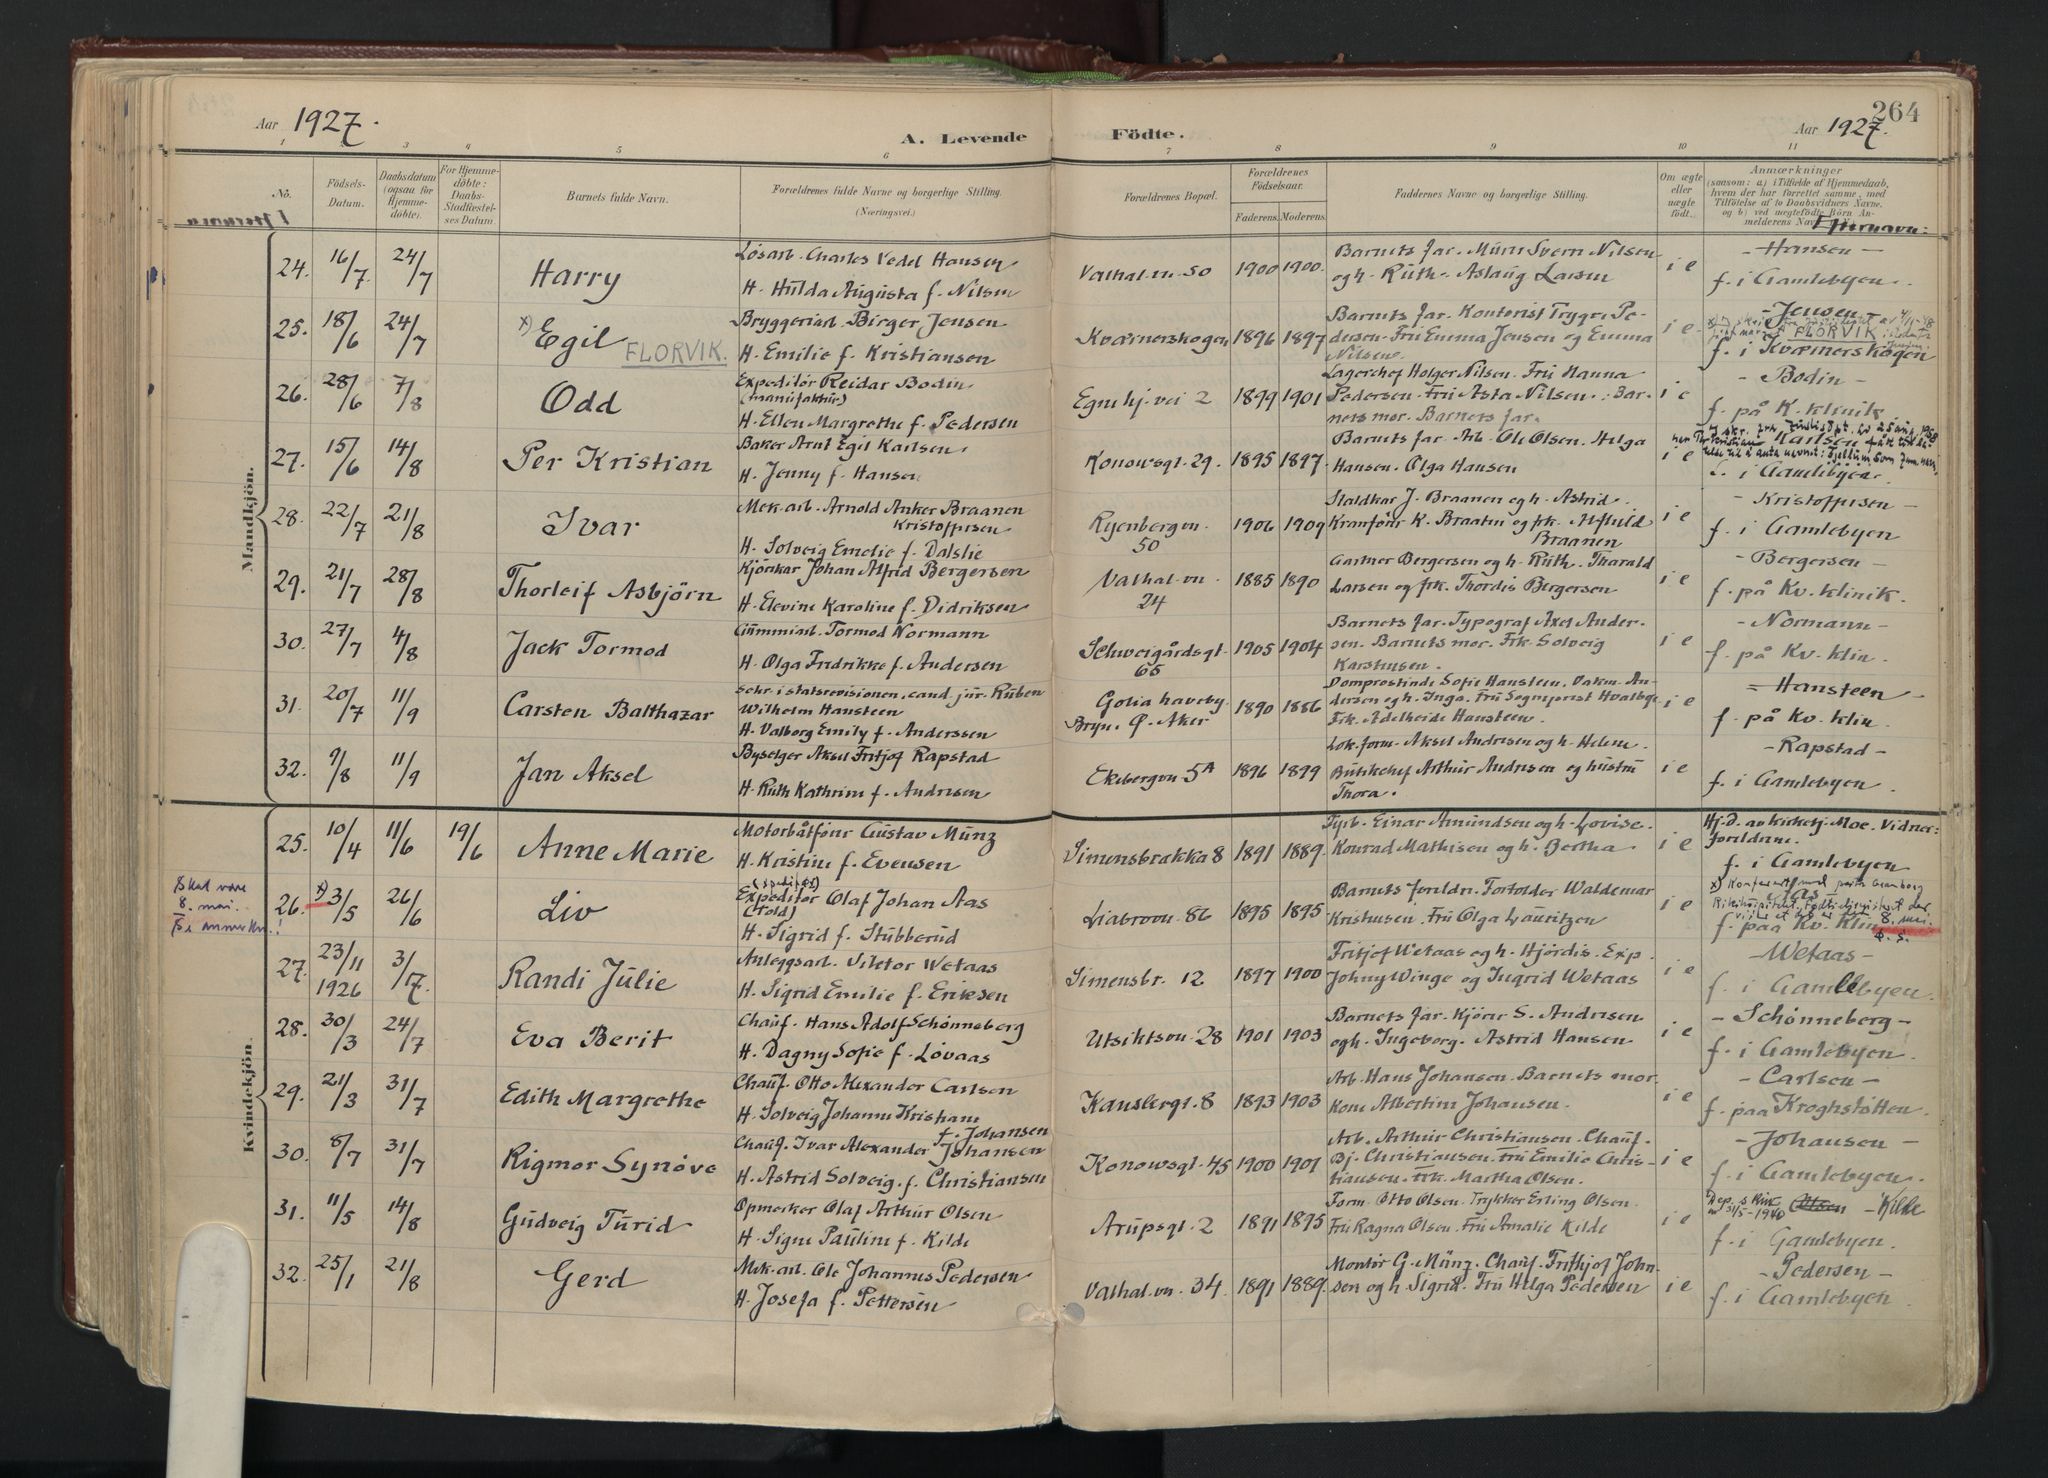 264
Aar 1927.
A. Levende
Fødte.
Aar 1927.
1 2 3 4 5 6 7 8 9 10 11
No.
Födsels-
Datum.
Daabsdatum
(ogsaa for
Hjemme-
döbte).
For Hjemme-
döbte:
Daabs-
Stadfæstel-
ses Datum.
Barnets fulde Navn.
Forældrenes fulde Navne og borgerlige Stilling.
(Næringsvei.)
Forældrenes Bopæl.
Forældrenes
Födselsaar.
Faderens. Moderens.
Faddernes Navne og borgerlige Stilling.
Om ægte
eller
uægte
födt.
Anmærkninger
(saasom: a) i Tilfælde af Hjemmedaab,
hvem der har forrettet samme, med
Tilföielse af to Daabsvidners Navne,
og b) ved uægtefödte Börn An-
melderens Navn
Efternavn:
Mandkjön.
24. 16/7. 24/7 Harry
Lösarb. Charles Vedel Hansen
H. Hulda Augusta f. Nilsen
Valhal.vn. 50 1900 1900.
Barnets far. Murer Svern Nilsen
og h. Ruth. Aslaug Larsen
i e
- Hansen -
f. i Gamlebyen.
25. 18/6 24/7 x) Egil FLORVIK.
Bryggeriarb. Birger Jensen
H. Emilie f. Kristiansen
Kværnerskogen 1896 1897
Barnets far. Kontorist Trygve Pe-
dersen. Fru Emma Jensen og Emma
Nilsen.
i e
- Jensen -
FLORVIK
f. i Kværnerskogen
26. 28/6 7/8 Odd
Expeditör Reidar Bodin
(manufaktur)
H. Ellen Margrethe f. Pedersen
Egnehj.vei 2 1899 1901
Lagerchef Holger Nilsen. Fru Hanna
Pedersen. Fru Asta Nilsen. Bar-
nets mor. Barnets far.
i e
- Bodin -
f. på K. klinik
27. 15/6 14/8 Per Kristian
Baker Arnt Egil Karlsen
H. Jenny f. Hansen
Konowsgt. 29. 1895 1897.
Barnets far. Arb. Ole Olsen. Helga
Hansen. Olga Hansen
i e
Karlsen
f. i Gamlebyen.
28. 22/7 21/8 Ivar
Mek. arb. Arnold Anker Braanen
Kristoffersen
H. Solveig Emelie f. Dalslie
Ryenbergvn.
50
1906 1909
Staldkar J. Braanen og h. Astrid.
Kranförer K. Braaten og frk. Alfhild
Braanen
i e
- Kristoffersen -
f. i Gamlebyen
29. 21/7 28/8 Thorleif Asbjörn
Kjörekar Johan Alfrid Bergersen
H. Elevine Karoline f. Didriksen
Valhal.vn.
24
1885 1890
Gartner Bergersen og h. Ruth. Tharald
Larsen og frk. Thordis Bergersen
i e
- Bergersen -
f. på Kv. klinik.
30. 27/7 4/8 Jack Tormod
Gummiarb. Tormod Normann
H. Olga Fredrikke f. Andersen
Schweigårdsgt.
65
1905 1904
Barnets far. Typograf Axel Ander-
sen. Barnets mor. Frk. Solveig
Karstensen.
i e
- Normann -
f. på Kv. klin.
31. 20/7 11/9 Carsten Balthazar
Sekr. i statsrevisionen, cand. jur. Ruben
Wilhelm Hansteen
H. Valborg Emily f. Anderssen
Golia haveby
Bryn. Ö. Aker
1890 1886
Domprostinde Sofie Hansteen. Vakm. An-
dersen og h. Inga. Fru Sogneprest Hvalbye
Frk. Adelheide Hansteen.
i e
- Hansteen -
f. på Kv. klin.
32. 9/8 11/9 Jan Aksel
Byselger Aksel Fritjof Rapstad
H. Ruth Kathrine f. Andresen
Ekebergvn 5A 1896 1899
Lok. form. Aksel Andresen og h. Helene.
Butikchef Arthur Andresen og hustru
Thora.
i e
- Rapstad -
f. i Gamlebyen.
Kvindekjön.
25. 10/4 11/6 19/6 Anne Marie
Motorbåtförer Gustav Münz
H. Kristine f. Evensen
Simensbrakka 8 1891 1889.
Fyrb. Einar Amundsen og h. Lovise.
Konrad Mathisen og h. Bertha
i e
Hj. D. av kirketj. Moe. Vidner:
foreldrene.
f. i Gamlebyen
Skal være
8. mai.
Se anmerkn.!
26. x) 3/5 26/6 Liv
(spedisjon)
Expeditör Olaf Johan Aas
(Told)
H. Sigrid f. Stubberud
Liabrovn. 86 1895 1895
Barnets foreldre. Fortolder Waldemar
Kristensen. Fru Olga Lauritzen
i e
Aas
8. mai.
f. paa Kv. klin
27. 23/11 1926 3/7. Randi Julie
Anleggsarb. Viktor Wetaas
H. Sigrid Emilie f. Eriksen
Simensbr. 12 1897 1900
Fritjof Wetaas og h. Hjördis. Exp.
Johny Winge og Ingrid Wetaas
i e
- Wetaas -
f. i Gamlebyen.
28. 30/3 24/7 Eva Berit
Chauf. Hans Adolf Schönneberg
H. Dagny Sofie f. Lövaas
Utsiktsvn. 28 1901 1903
Barnets far. Kjörer S. Andresen
og h. Ingeborg. Astrid Hansen
i e
- Schönneberg -
f. i Gamlebyen.
29. 21/3 31/7 Edith Margrethe
Chauf. Otto Alexander Carlsen
H. Solveig Johanne Kristiane
f. Johansen
Kausbergt. 8 1893 1903
Arb. Hans Johansen. Barnets mor.
Kone Albertine Johansen.
i e
- Carlsen -
f. paa Kroghstötten.
30. 8/7 31/7 Rigmor Synöve
Chauf. Ivar Alexander Johansen
H. Astrid Solveig f. Christiansen
Konowsgt. 45 1900 1901
Arb. Arthur Christiansen. Chauf.
Bj. Christiansen. Fru Emilie Chris-
tiansen. Frk. Martha Olsen.
i e
- Johansen -
f. i Gamlebyen.
31. 11/5 14/8 Gudveig Turid
Opmerker Olaf Arthur Olsen
H. Signe Pauline f. Kilde
Arupsgt. 2 1891 1895
Form. Otto Olsen. Trykker Erling Olsen.
Fru Ragna Olsen. Fru Amalie Kilde
i e
Olsen - Kilde
f. i Gamlebyen.
32. 25/1 21/8 Gerd
Mek. arb. Ole Johannes Pedersen
H. Josefa f. Pettersen
Valhal.vn. 34. 1891 1889.
Montör G. Münz. Chauf. Frithjof John-
sen og h. Sigrid. Fru Helga Pedersen
i e
- Pedersen -
f. i Gamlebyen.